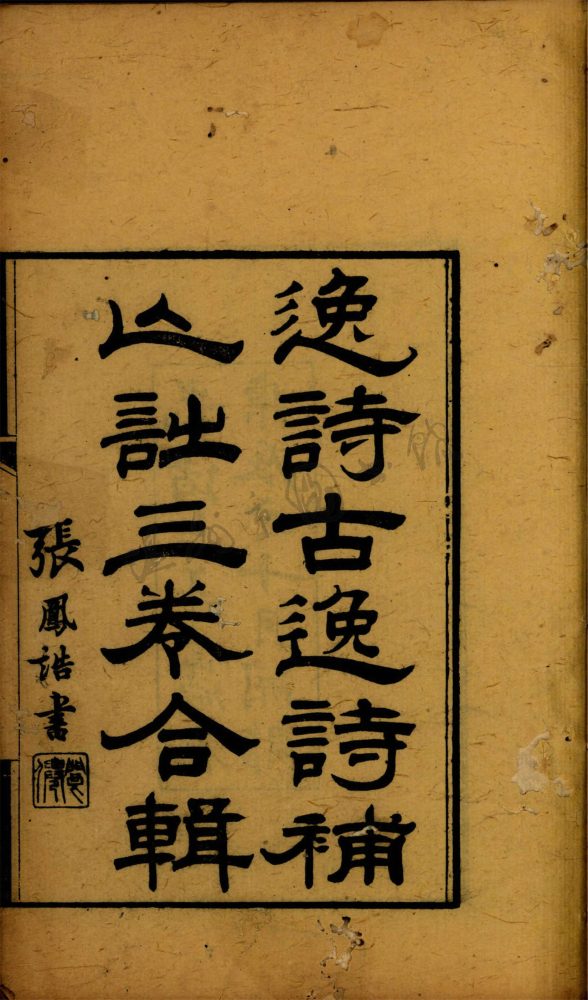 逸詩古逸詩補
亾詩三卷合輯
張鳳誥書